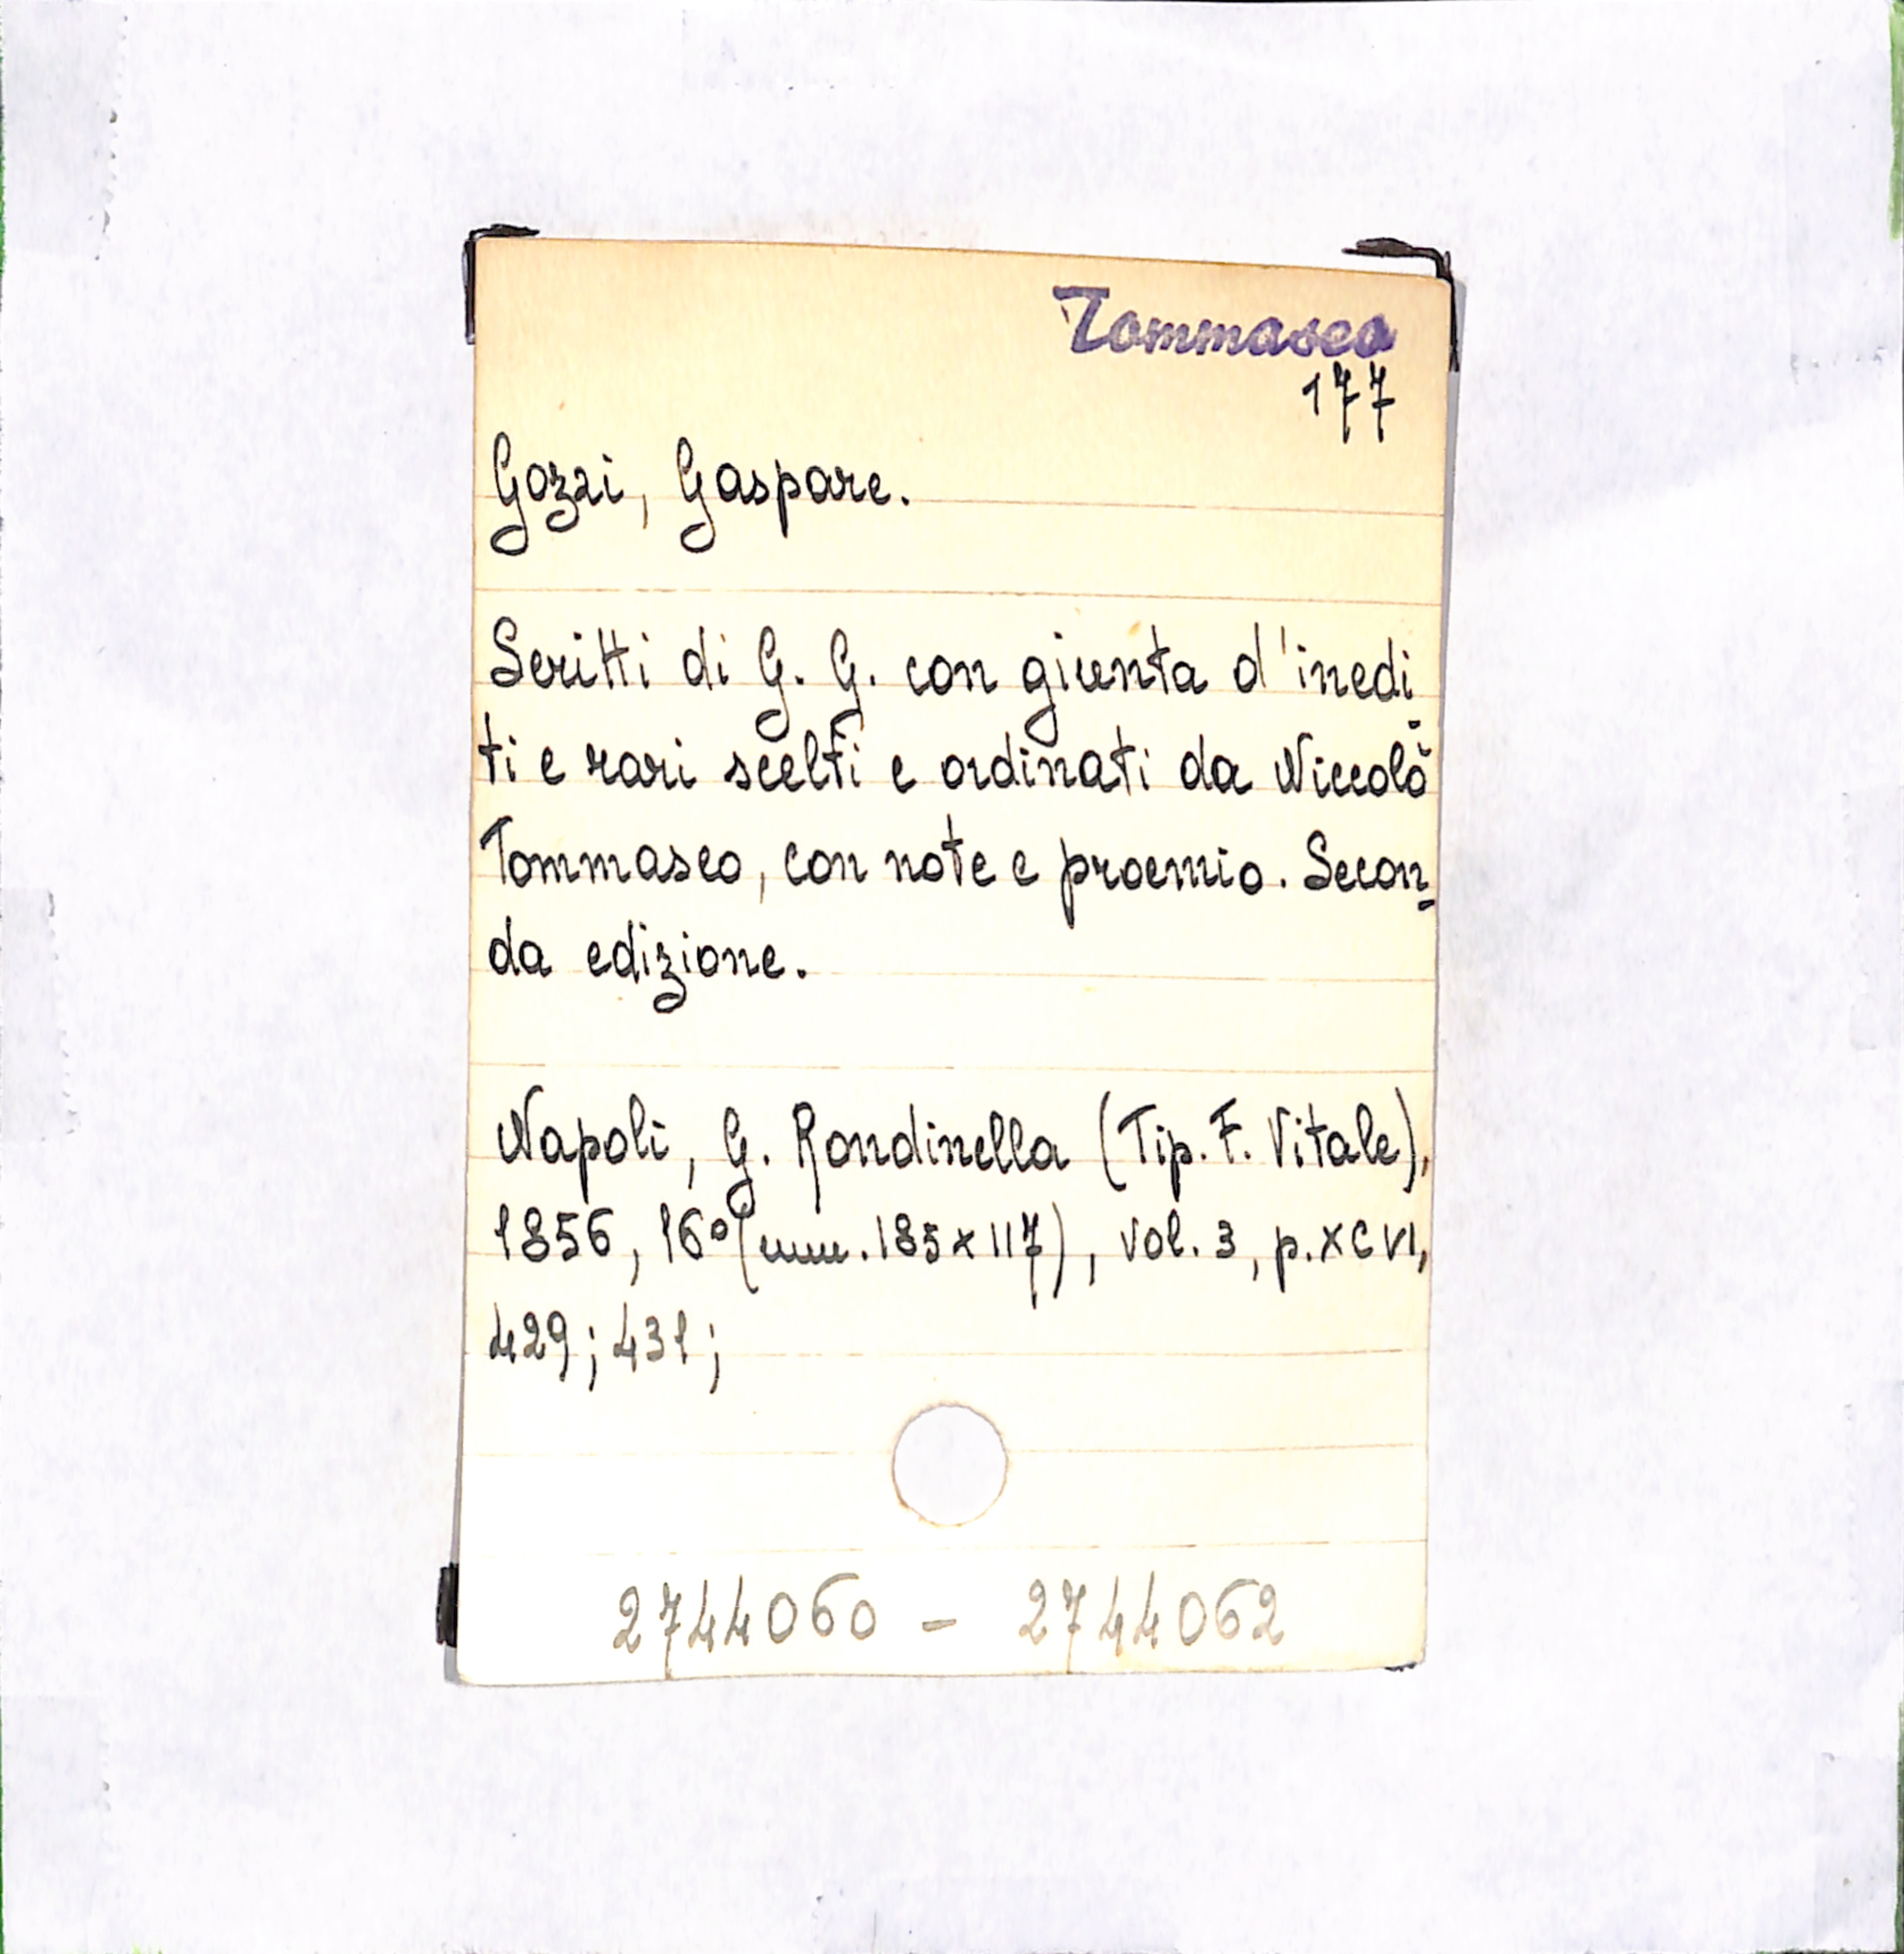 Tommaseo
177
Gozzi, Gaspare.
Scritti di G. G. con giunta d'inedi-
ti e rari scelti e ordinati da Niccolò
Tommaseo, con note e proemio. Secon-
da edizione.
Napoli, G. Rondinella (Tip. F. Vitale),
1856, 16° (mm. 185x117), vol. 3, p. XCVI,
429; 431;
2744060 - 2744062